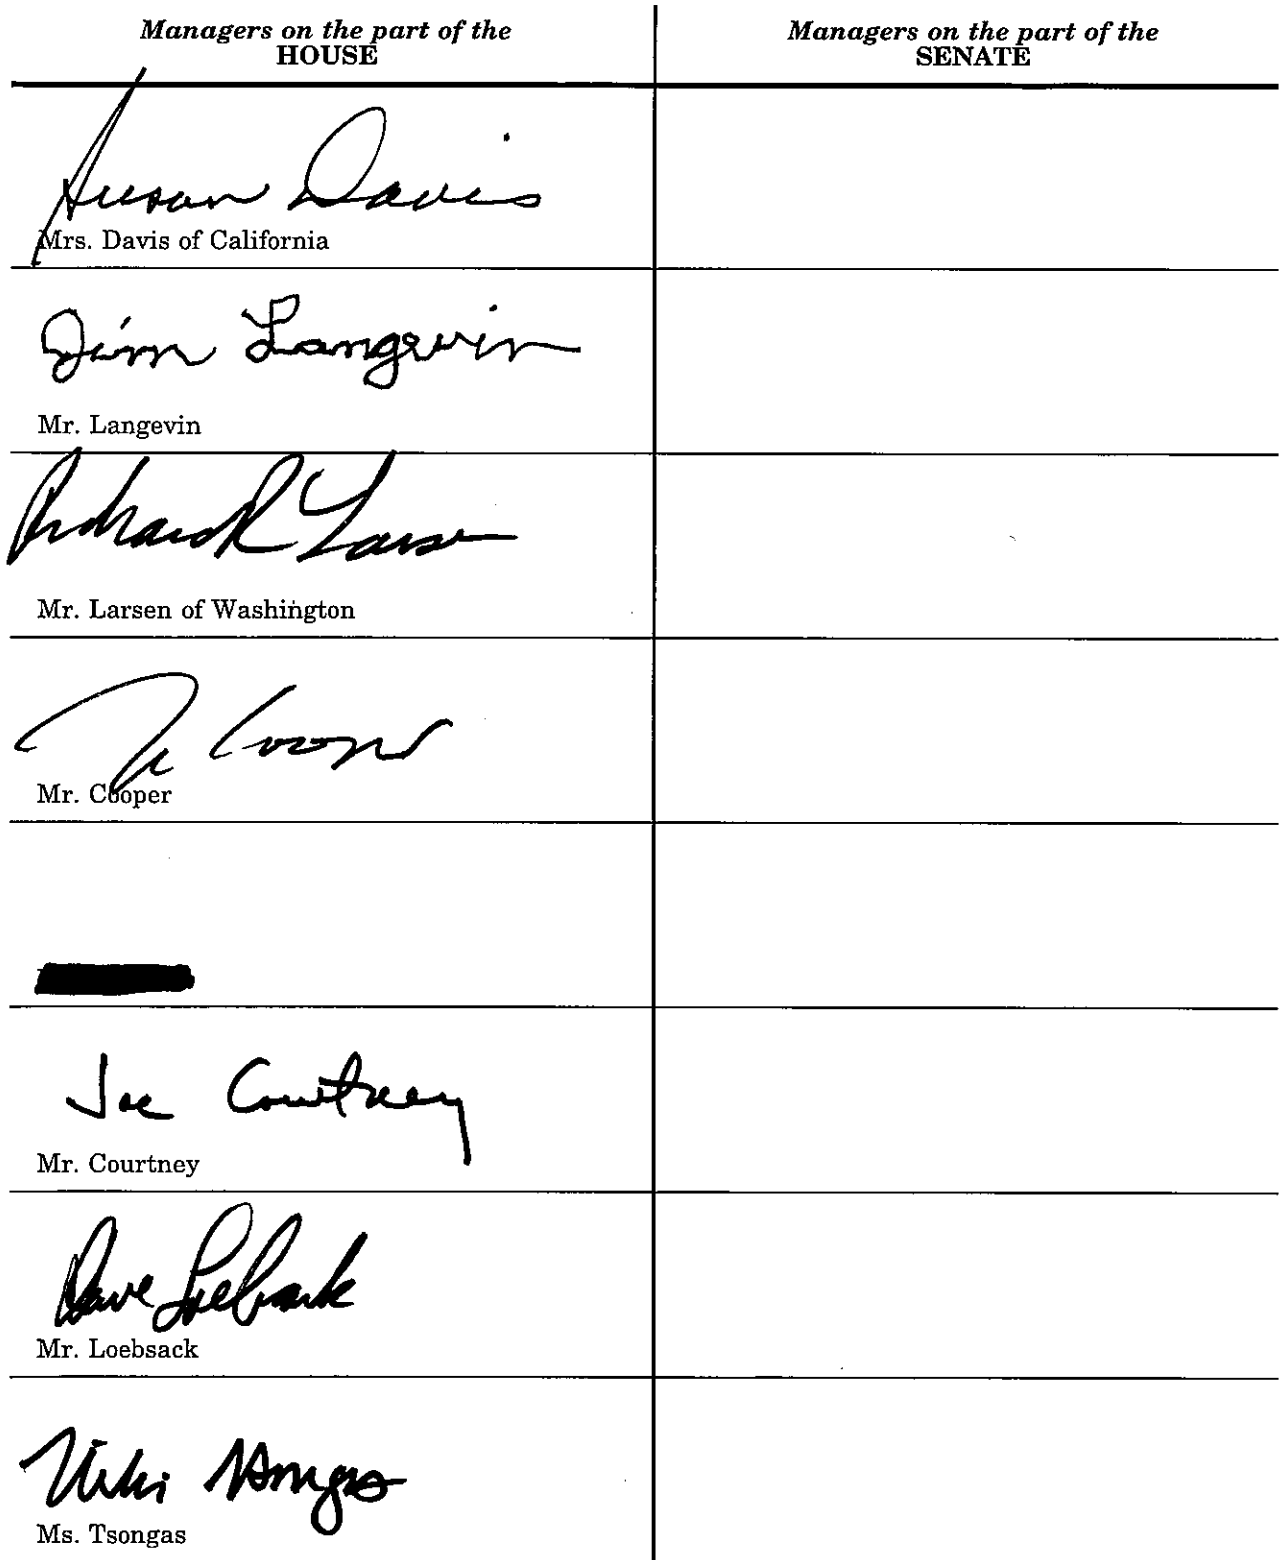 Managers on the part of the
HOUSE
Managers on the part of the
SENATE
Susan Davis
Mrs. Davis of California
Jim Langevin
Mr. Langevin
Richard R Larsen
Mr. Larsen of Washington
Cooper
Mr. Cooper
Joe Courtney
Mr. Courtney
Dave Loebsack
Mr. Loebsack
Niki Tsongas
Ms. Tsongas